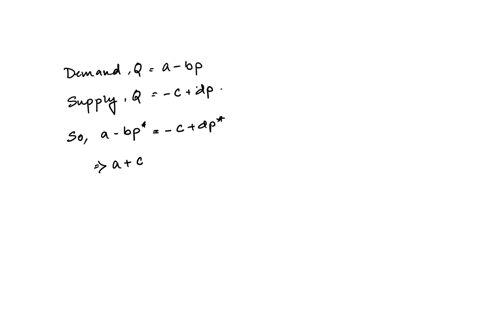 Demand, Q = a - bp
Supply, Q = -c + dp.
So, a - bp* = -c + dp*
⇒ a + c